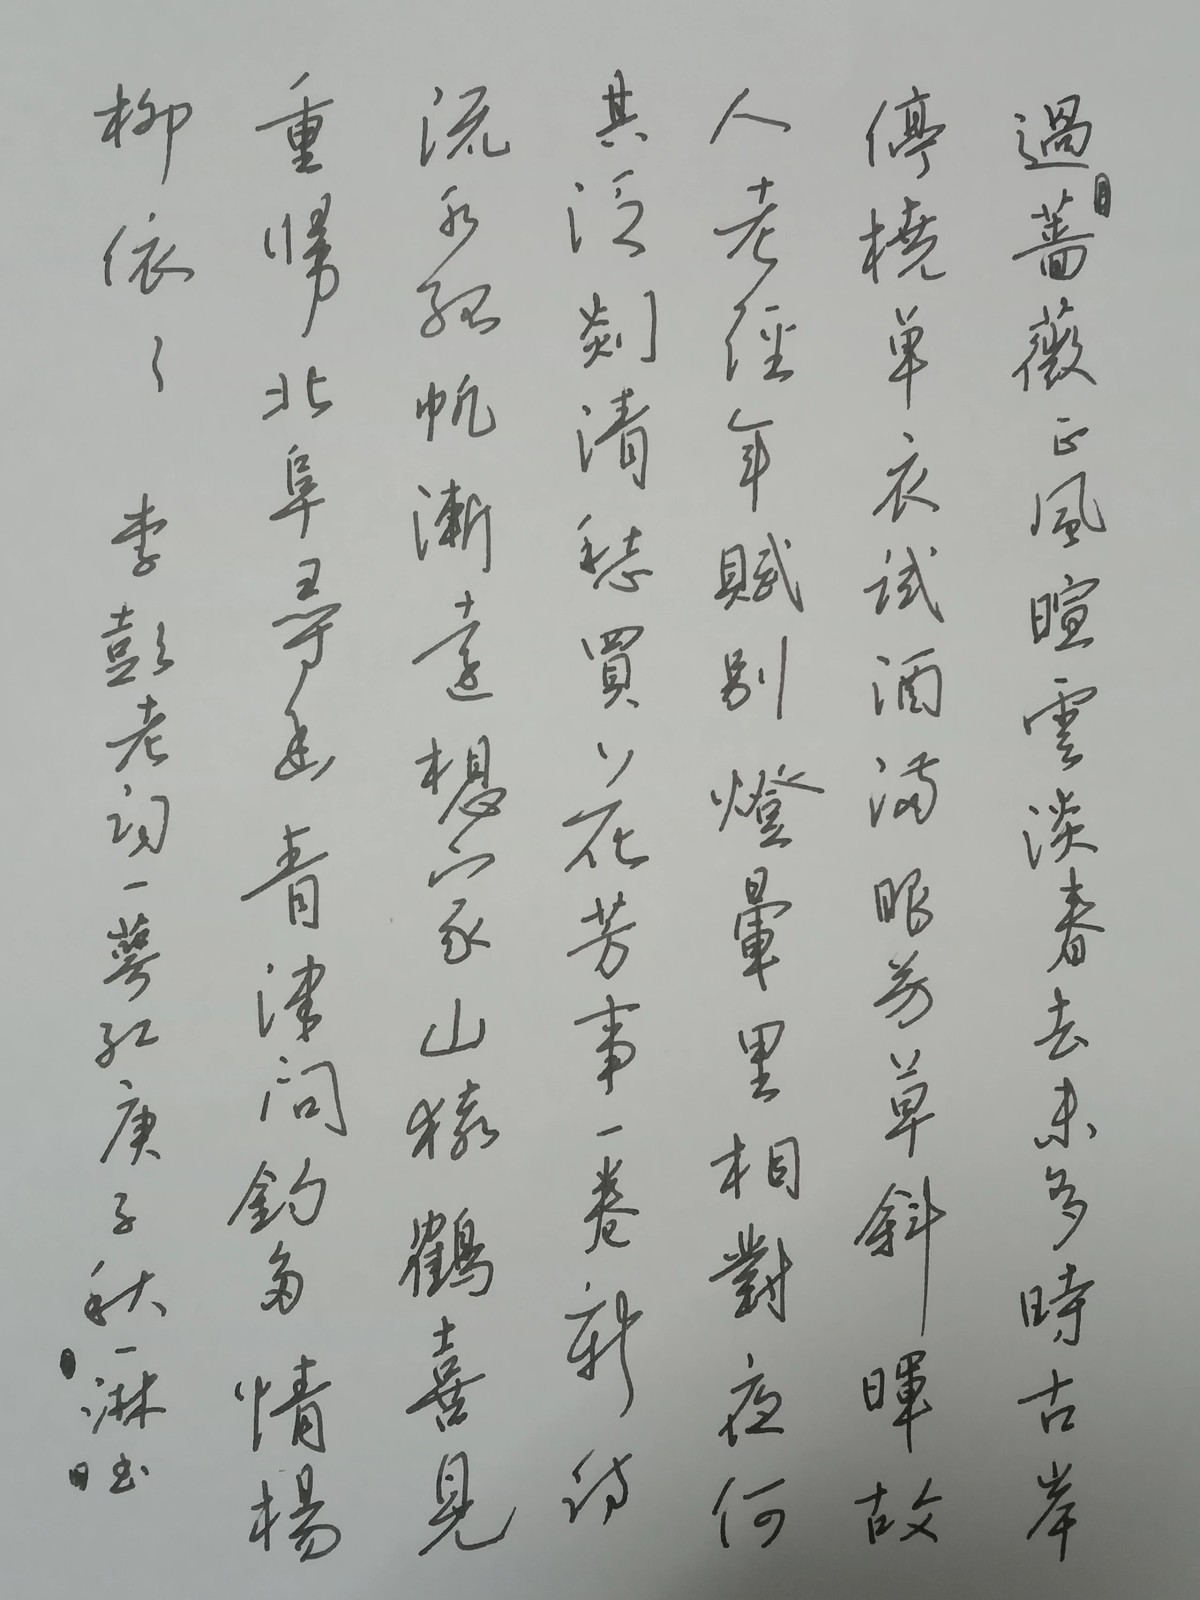 過薔薇正風暄雲淡春去未多時古岸
停橈單衣試酒滿眼芳草斜暉故
人老經年賦別燈暈里相對夜何
其泛剡清愁買花芳事一卷新詩
流水孤帆漸遠想家山猿鶴喜見
重歸北阜尋幽青津問釣多情楊
柳依〻 李彭老詞一萼紅庚子秋一淋